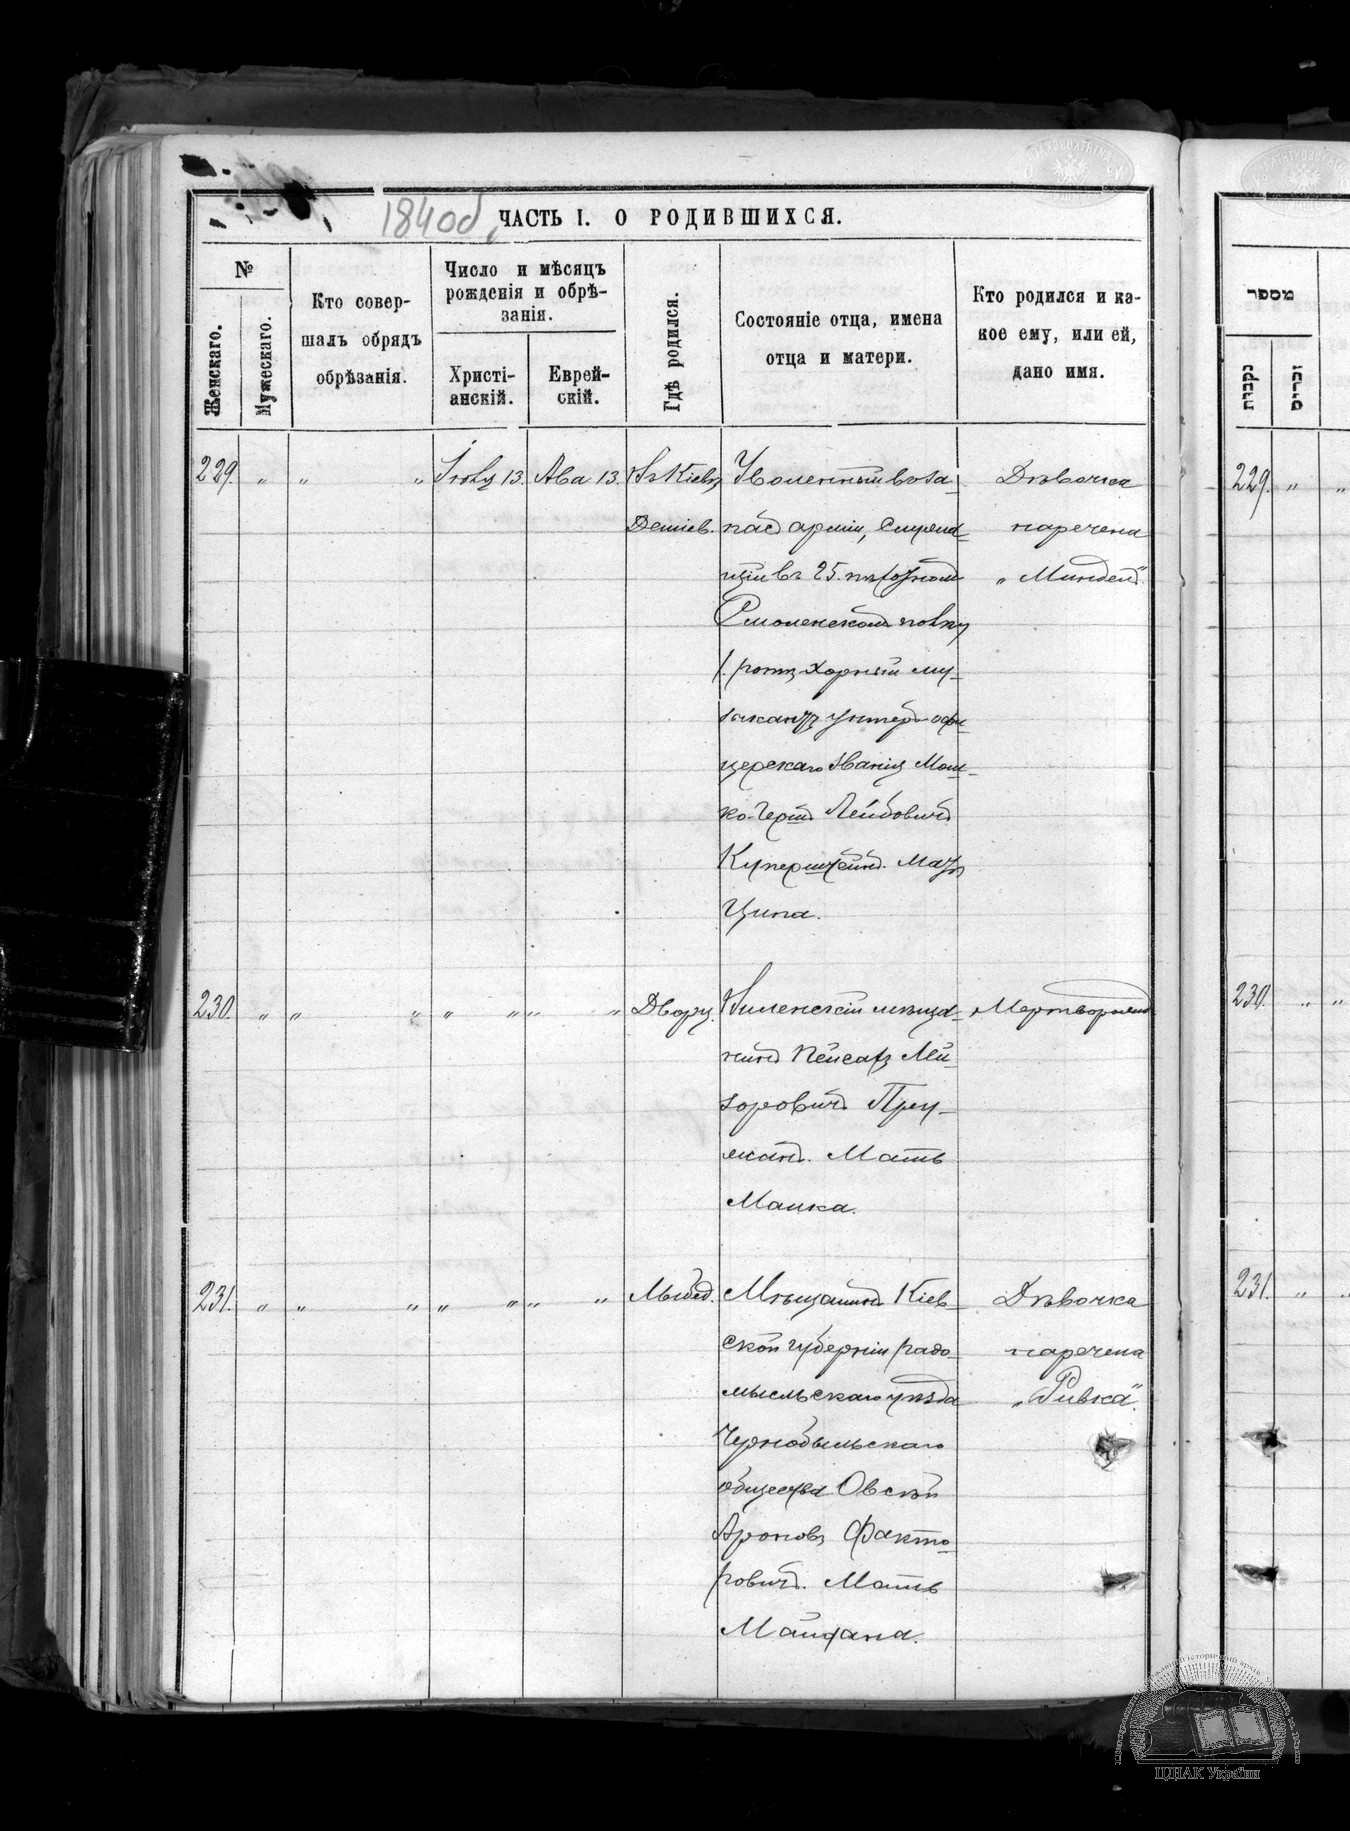 1840об.
ЧАСТЬ I. О РОДИВШИХСЯ.
№
Женскаго.
Мужескаго.
Кто совер-
шалъ обрядъ
обрѣзанія.
Число и мѣсяцъ
рожденія и обрѣ-
занія.
Христі-
анскій.
Еврей-
скій.
Гдѣ родился.
Состояніе отца, имена
отца и матери.
Кто родился и ка-
кое ему, или ей,
дано имя.
229. " " " Іюль 13. Ава 13. Въ Кіевѣ Уволенный въ за-
пас арміи,
Дѣвочка
наречена
"Миндель".
въ 25. пѣхотном
Смоленскомъ полку
ротѣ хорный му-
зыкантъ унтеръ-офи-
церскаго званія Мош-
ко-Герш Лейбовичъ
Куперштейнъ. Мать
Ципа.
230. " " " " " " " Дворц. Виленскій мѣща-
нинъ Пейсахъ Лей-
зоровичъ
Мать
Малка.
Мертворожд
231. " " " " " " " Лыбед. Мѣщанинъ Кіев-
ской губерніи радо-
мысльскаго уѣзда
Чернобыльскаго
общества Овсѣй
Ароновъ Факто-
ровичъ. Мать
Дѣвочка
наречена
"Ривка".
מספר
נקבות
זכרים
229. " "
230. " "
231. " "
ЦДІАК України